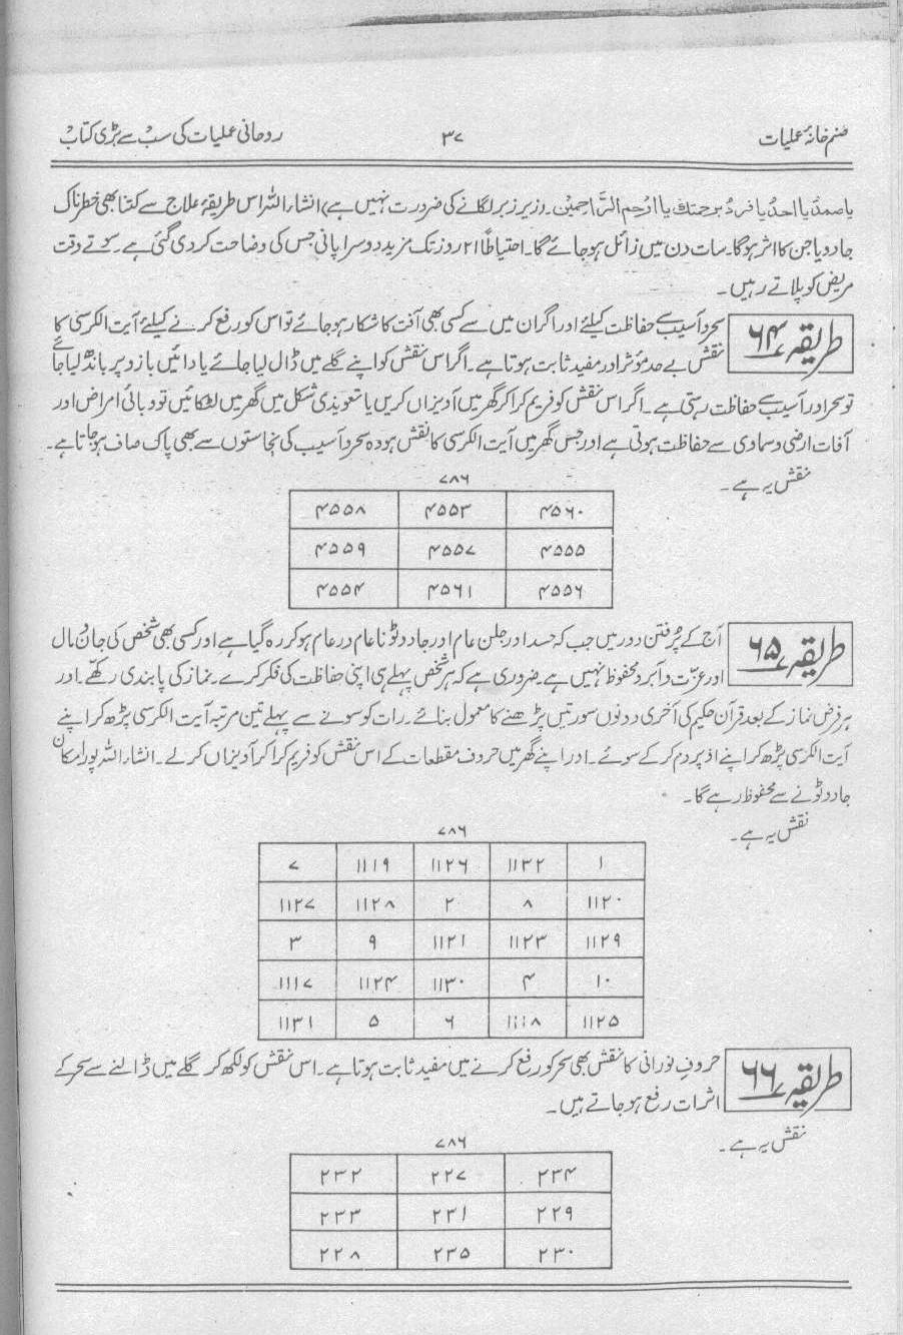 صنم خانۂ عملیات ۳۷ روحانی عملیات کی سب سے بڑی کتاب
یاصمدُ یا احدُ یا فردُ برحمتک یا ارحم الرّاحمین۔ (زیر زبر لگانے کی ضرورت نہیں ہے) انشاء اللہ اس طریقۂ علاج سے کتنا بھی خطرناک
جادو یا جن کا اثر ہوگا۔ سات دن میں زائل ہوجائے گا۔ احتیاطاً ۲۱ روز تک مزید دوسرا پانی جس کی وضاحت کردی گئی ہے۔ سوتے وقت
مریض کو پلاتے رہیں۔
طریقہ ۶۴
سحر و آسیب سے حفاظت کیلئے اور اگر ان میں سے کسی بھی آفت کا شکار ہوجائے تو اس کو رفع کرنے کیلئے آیت الکرسی کا
نقش بے حد مؤثر اور مفید ثابت ہوتا ہے۔ اگر اس نقش کو اپنے گلے میں ڈال لیا جائے یا دائیں بازو پر باندھ لیا جائے
تو سحر اور آسیب سے حفاظت رہتی ہے۔ اگر اس نقش کو فریم کراکر گھر میں آویزاں کریں یا تعویذی شکل میں گھر میں لٹکائیں تو وبائی امراض اور
آفات ارضی و سماوی سے حفاظت ہوتی ہے اور جس گھر میں آیت الکرسی کا نقش ہو وہ سحر و آسیب کی نجاستوں سے بھی پاک صاف ہوجاتا ہے۔
نقش یہ ہے۔
۷۸۶
۴۵۶۰ ۴۵۵۳ ۴۵۵۸
۴۵۵۵ ۴۵۵۷ ۴۵۵۹
۴۵۵۶ ۴۵۶۱ ۴۵۵۴
طریقہ ۶۵
آج کے پُر فتن دور میں جب کہ حسد اور جلن عام اور جادو ٹونا عام در عام ہوکر رہ گیا ہے اور کسی بھی شخص کی جان و مال
اور عزّت و آبرو محفوظ نہیں ہے۔ ضروری ہے کہ ہر شخص پہلے ہی اپنی حفاظت کی فکر کرے۔ نماز کی پابندی رکھّے۔ اور
ہر فرض نماز کے بعد قرآن حکیم کی آخری دونوں سورتیں پڑھنے کا معمول بنائے۔ رات کو سونے سے پہلے تین مرتبہ آیت الکرسی پڑھ کر اپنے
آیت الکرسی پڑھ کر اپنے اوپر دم کرکے سوئے۔ اور اپنے گھر میں حروف مقطعات کے اس نقش کو فریم کراکر آویزاں کرلے۔ انشاء اللہ پورا مکان
جادو ٹونے سے محفوظ رہے گا۔
نقش یہ ہے۔
۷۸۶
۱ ۱۱۳۲ ۱۱۲۶ ۱۱۱۹ ۷
۱۱۲۰ ۸ ۲ ۱۱۲۸ ۱۱۲۷
۱۱۲۹ ۱۱۲۳ ۱۱۲۱ ۹ ۳
۱۰ ۴ ۱۱۳۰ ۱۱۲۴ ۱۱۱۷
۱۱۲۵ ۱۱۱۸ ۶ ۵ ۱۱۳۱
طریقہ ۶۶
حروفِ نورانی کا نقش بھی سحر کو رفع کرنے میں مفید ثابت ہوتا ہے۔ اس نقش کو لکھ کر گلے میں ڈالنے سے سحر کے
اثرات رفع ہوجاتے ہیں۔
نقش یہ ہے۔
۷۸۶
۲۳۴ ۲۲۷ ۲۳۲
۲۲۹ ۲۳۱ ۲۳۳
۲۳۰ ۲۳۵ ۲۲۸